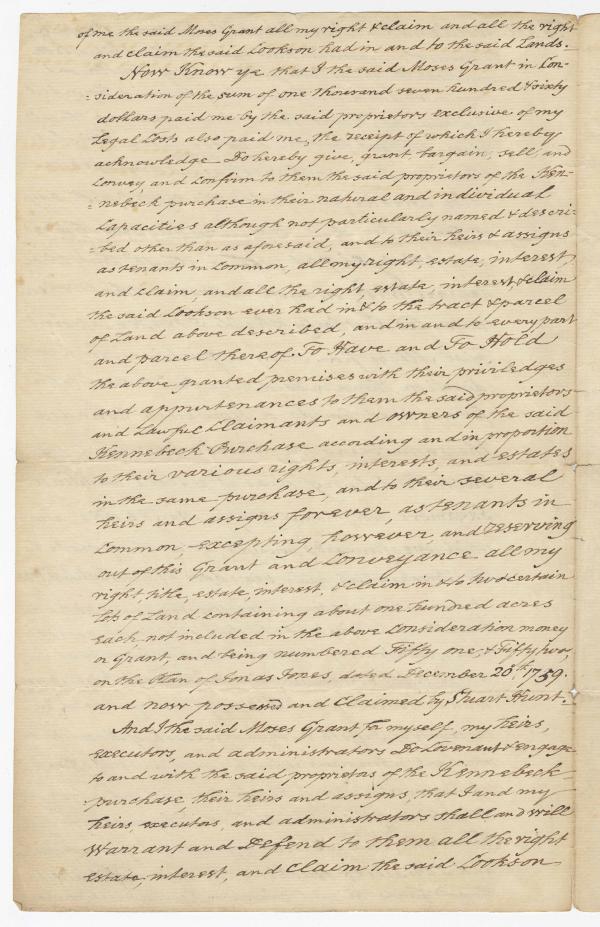 of me the said Moses Grant all my right & claim and all the right
and claim the said Cookson had in and to the said Lands.
Now Know ye that I the said Moses Grant in Con-
=sideration of the sum of one thousand seven hundred & sixty
dollars paid me by the said proprietors exclusive of my
Legal Costs also paid me, the receipt of which I hereby
acknowledge Do hereby give, grant bargain, sell, and
Convey, and Confirm to them the said proprietors of the Ken-
=nebeck purchase in their natural and individual
Capacities although not particularly named & descri-
=bed other than as aforesaid, and to their heirs & assigns
as tenants in Common, all my right, estate, interest,
and claim, and all the right, estate, interest & claim
the said Cookson ever had in & to the tract & parcel
of Land above described, and in and to every part
and parcel thereof. To Have and To Hold
the above granted premises with their priviledges
and appurtenances to them the said proprietors
and Lawful Claimants and owners of the said
Kennebeck Purchase according and in proportion
to their various rights, interests, and estates
in the same purchase, and to their several
heirs and assigns forever, as tenants in
Common, excepting, however, and reserving
out of this Grant and Conveyance all my
right title, estate, interest, & claim in & to two certain
Lots of Land containing about one hundred acres
each, not included in the above Consideration money
or Grant, and being numbered Fifty one, & Fifty two,
on the Plan of Jonas Jones, dated December 20th 1759.
and now possessed and Claimed by Stuart Hunt.
And I the said Moses Grant for myself, my heirs,
executors, and administrators Do Covenant & engage
to and with the said proprietors of the Kennebeck
purchase, their heirs and assigns, that I and my
heirs, executors, and administrators shall and will
Warrant and Defend to them all the right
estate, interest, and Claim the said Cookson